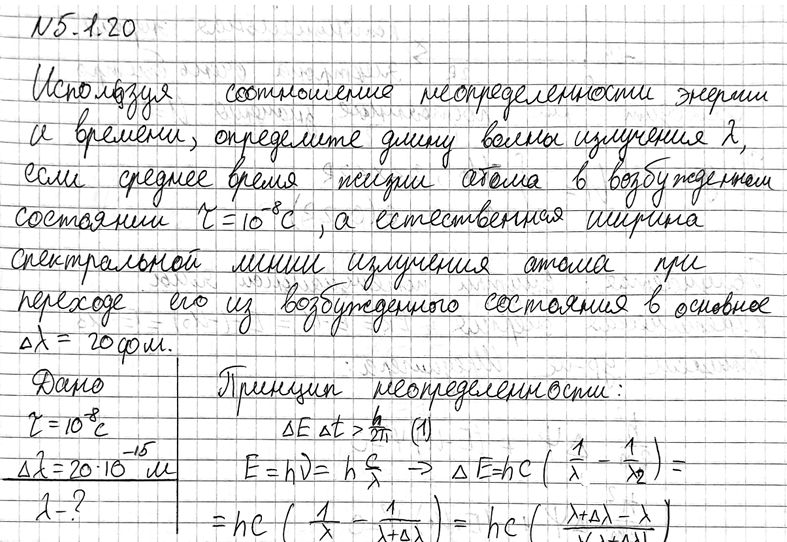 N5.1.20
Используя соотношение неопределенности энергии
и времени, определите длину волны излучения λ,
если среднее время жизни атома в возбужденном
состоянии τ = 10⁻⁸с, а естественная ширина
спектральной линии излучения атома при
переходе его из возбужденного состояния в основное
Δλ = 20фм.
Дано
τ = 10⁻⁸с
Δλ = 20·10⁻¹⁵ м
λ - ?
Принцип неопределенности:
ΔE Δt > h/2π (1)
E = hν = h c/λ → ΔE = hc (1/λ - 1/λ2) =
= hc (1/λ - 1/(λ+Δλ)) = hc · (λ+Δλ-λ)/(λ(λ+Δλ))